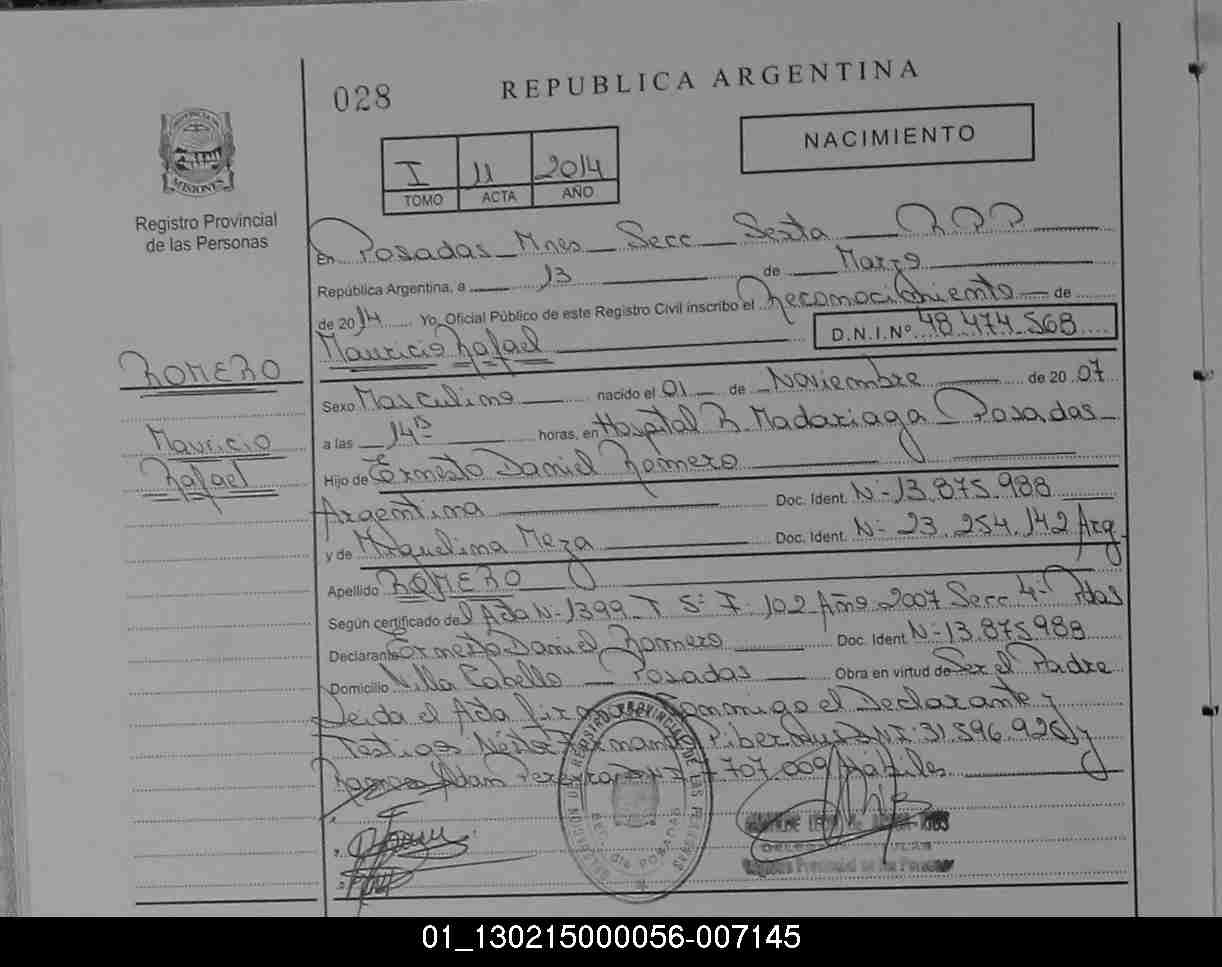 028
REPUBLICA ARGENTINA
NACIMIENTO
I 11 2014
TOMO ACTA AÑO
MISIONES
Registro Provincial
de las Personas
En Posadas Mnes Secc Sexta R.P.P
República Argentina, a 13 de Marzo
de 2014 Yo, Oficial Público de este Registro Civil inscribo el Reconocimiento de
Mauricio Rafael D.N.I.Nº 48.474.568
ROMERO
Mauricio
Rafael
Sexo Masculino nacido el 01 de Noviembre de 2007
a las 14 horas, en Hospital R. Madariaga Posadas
Hijo de Ernesto Daniel Romero
Argentina Doc. Ident. Nº 13.875.988
y de Miquelina Meza Doc. Ident. Nº 23.254.142 Arg.
Apellido ROMERO
Según certificado del Acta Nº 1399 T 5º F 102 Año 2007 Secc 4º Pdas
Declarante Ernesto Daniel Romero Doc. Ident Nº 13.875.988
Domicilio Villa Cabello Posadas Obra en virtud de Ser el Padre
Leida el Acta conmigo el Declarante y
Testigos Néstor DNI: 31.596.926 y
Adam 707.009
REGISTRO PROVINCIAL DE LAS PERSONAS
POSADAS
Registro Provincial de las Personas
01_130215000056-007145